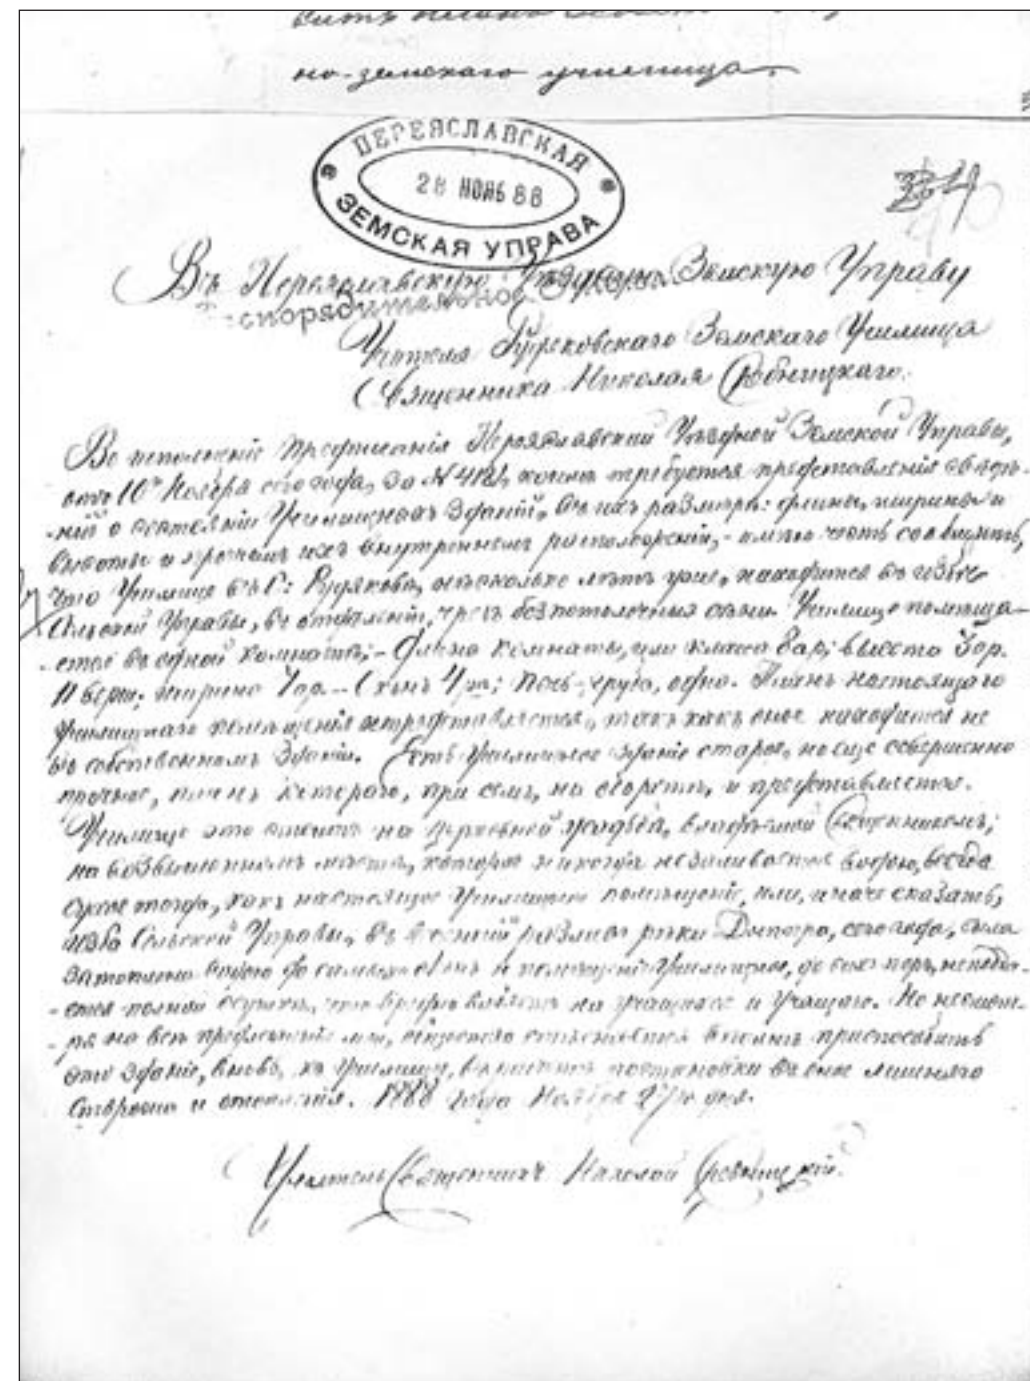 но-земскаго училища.
ПЕРЕЯСЛАВСКАЯ
28 НОЯБ 88
ЗЕМСКАЯ УПРАВА
Въ Переяславскую Уѣздную Земскую Управу
Учителя Рудяковскаго Земскаго Училища
Священника Николая
Во исполненіе предписанія Переяславской Уѣздной Земской Управы,
отъ 10го Ноября сего года, за № коимъ требуется представленія свѣдѣ-
-ній о состояніи Училищныхъ зданій, въ ихъ размѣрѣ: длины, ширины и
высоты и прочемъ ихъ внутреннемъ расположеніи, - имѣю честь сообщить,
что Училище въ С: Рудяковѣ, нѣсколько лѣтъ уже, находится въ избѣ
Сельской Управы, въ отдѣленіи, чрезъ безпотолочныя сѣни. Училище помѣща-
-ется въ одной комнатѣ; - Длина комнаты, или класса 8 ар; высота 3 ар.
11 верш; ширина 7 ар. - Оконъ 4; Печь-груба, одна. Планъ настоящаго
училищнаго помѣщенія непредставляется, такъ какъ оное находится не
въ собственномъ зданіи. Есть Училищное зданіе старое, но еще совершенно
прочное, планъ котораго, при семъ, на оборотѣ, и представляется.
Училище это стоитъ на церковной усадьбѣ, владѣемой Священникомъ;
на возвышенномъ мѣстѣ, которое никогда незаливается водою, всегда
сухое тогда, какъ настоящее Училищное помѣщеніе, или, иначе сказать,
изба Сельской Управы, въ весенній разливъ рѣки Днѣпра, сего года, была
затоплена водою до самыхъ оконъ и помѣщеніе Училищное, до сихъ поръ,
полной осушки, что вредно вліяетъ на учащихся и Учащаго. Но несмот-
-ря на всѣ мои, общество приспособить
это зданіе, вновь, къ Училищу, лишняго
Сторожа и отопленія. 1888 года Ноября 27го дня.
Учитель Священникъ Николай